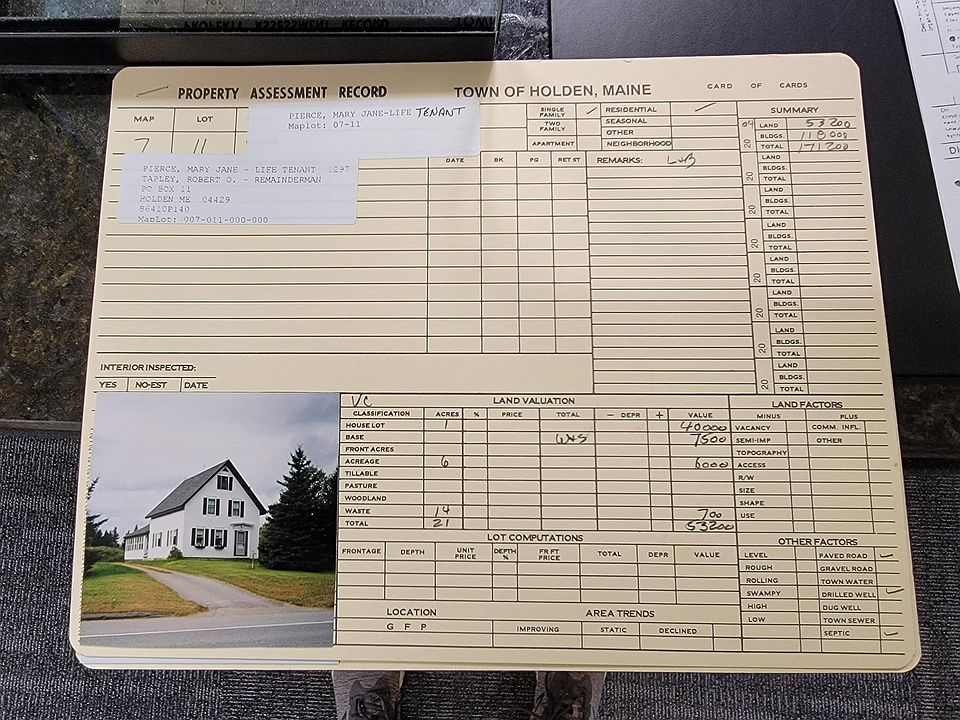 PROPERTY ASSESSMENT RECORD
TOWN OF HOLDEN, MAINE
CARD OF CARDS
MAP LOT
7 11
PIERCE, MARY JANE-LIFE TENANT
Maplot: 07-11
PIERCE, MARY JANE - LIFE TENANT 1297
TAPLEY, ROBERT O. - REMAINDERMAN
PO BOX 11
HOLDEN ME 04429
B6410P140
MapLot: 007-011-000-000
SINGLE FAMILY ✓
TWO FAMILY
APARTMENT
RESIDENTIAL ✓
SEASONAL
OTHER
NEIGHBORHOOD
DATE BK PG RET ST
REMARKS: L+B
SUMMARY
04 LAND 53200
BLDGS. 118000
20 TOTAL 171200
LAND
BLDGS.
20 TOTAL
LAND
BLDGS.
20 TOTAL
LAND
BLDGS.
20 TOTAL
LAND
BLDGS.
20 TOTAL
LAND
BLDGS.
20 TOTAL
LAND
BLDGS.
20 TOTAL
LAND
BLDGS.
20 TOTAL
INTERIOR INSPECTED:
YES NO-EST DATE
VC LAND VALUATION
CLASSIFICATION ACRES % PRICE TOTAL - DEPR + VALUE
HOUSE LOT 1 40000
BASE W+S 7500
FRONT ACRES
ACREAGE 6 6000
TILLABLE
PASTURE
WOODLAND
WASTE 14 700
TOTAL 21 53200
LAND FACTORS
MINUS PLUS
VACANCY COMM. INFL.
SEMI-IMP OTHER
TOPOGRAPHY
ACCESS
R/W
SIZE
SHAPE
USE
LOT COMPUTATIONS
FRONTAGE DEPTH UNIT PRICE DEPTH % FR FT PRICE TOTAL DEPR VALUE
LOCATION
G F P
AREA TRENDS
IMPROVING STATIC DECLINED
OTHER FACTORS
LEVEL PAVED ROAD ✓
ROUGH GRAVEL ROAD
ROLLING TOWN WATER
SWAMPY DRILLED WELL ✓
HIGH DUG WELL
LOW TOWN SEWER
SEPTIC ✓